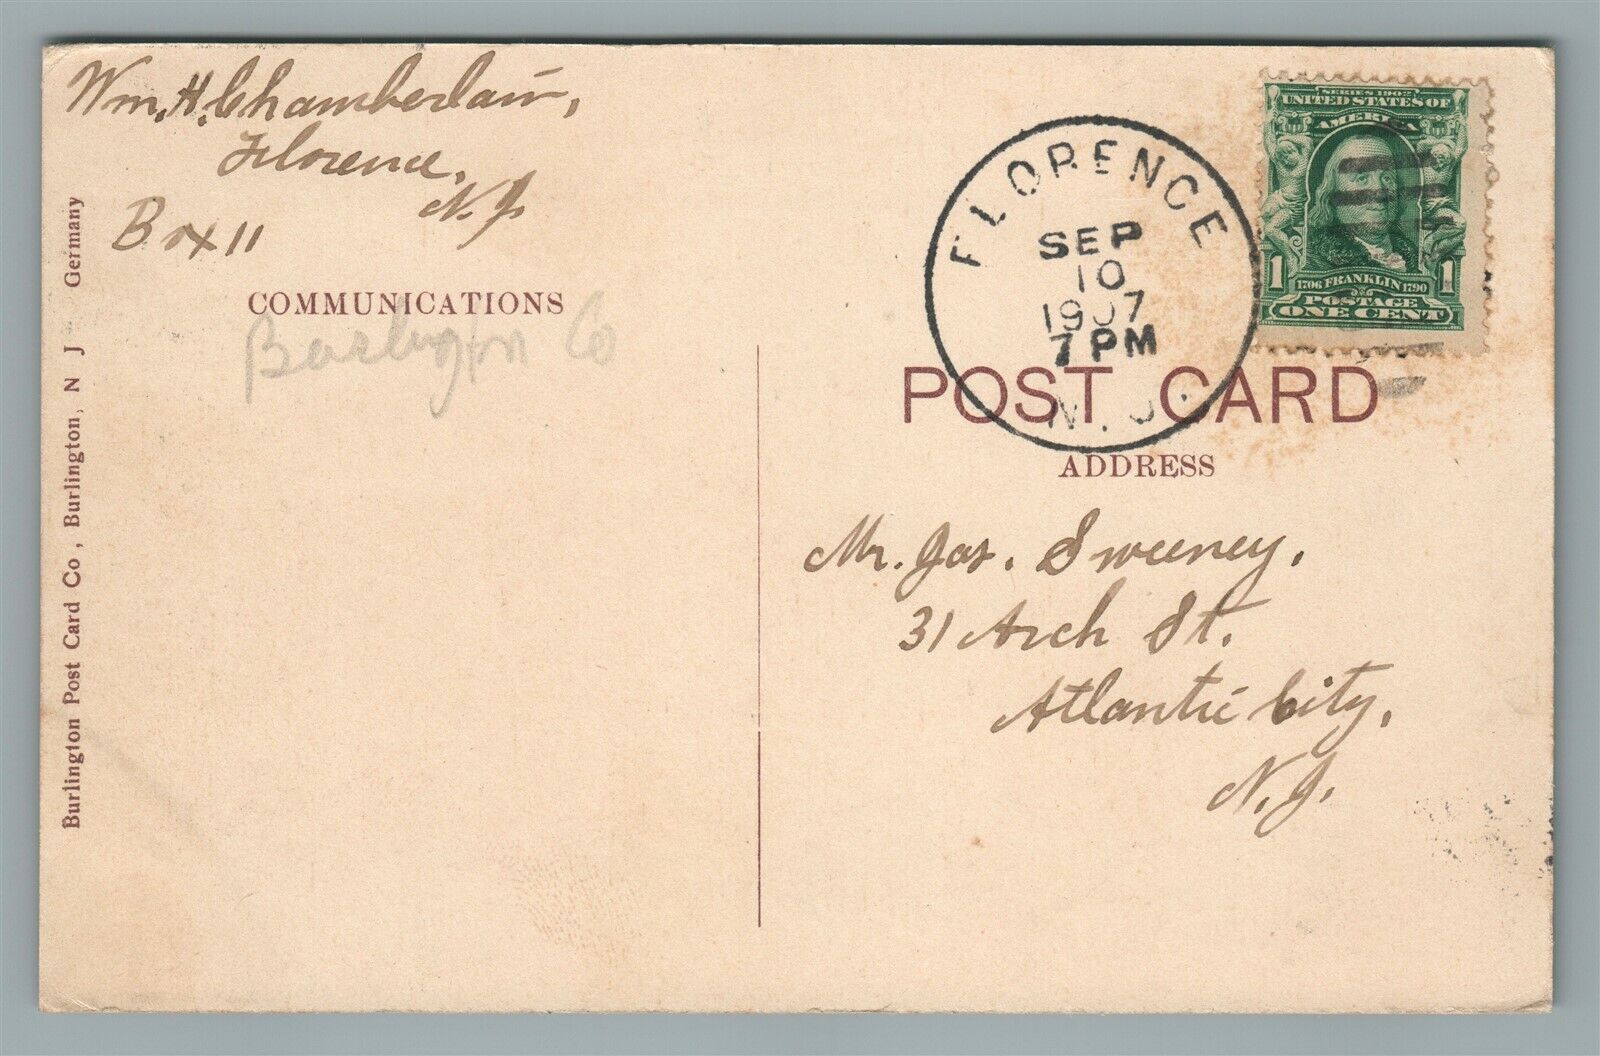 Wm. H. Chamberlain,
Florence,
N. J.
Box 11
COMMUNICATIONS
Burlington Co
Burlington Post Card Co, Burlington, N J Germany
FLORENCE
SEP
10
1907
7 PM
N. J.
SERIES 1902
UNITED STATES OF
AMERICA
1 1
1706 FRANKLIN 1790
POSTAGE
ONE CENT
POST CARD
ADDRESS
Mr. Jas. Sweeney,
31 Arch St.
Atlantic City,
N. J.